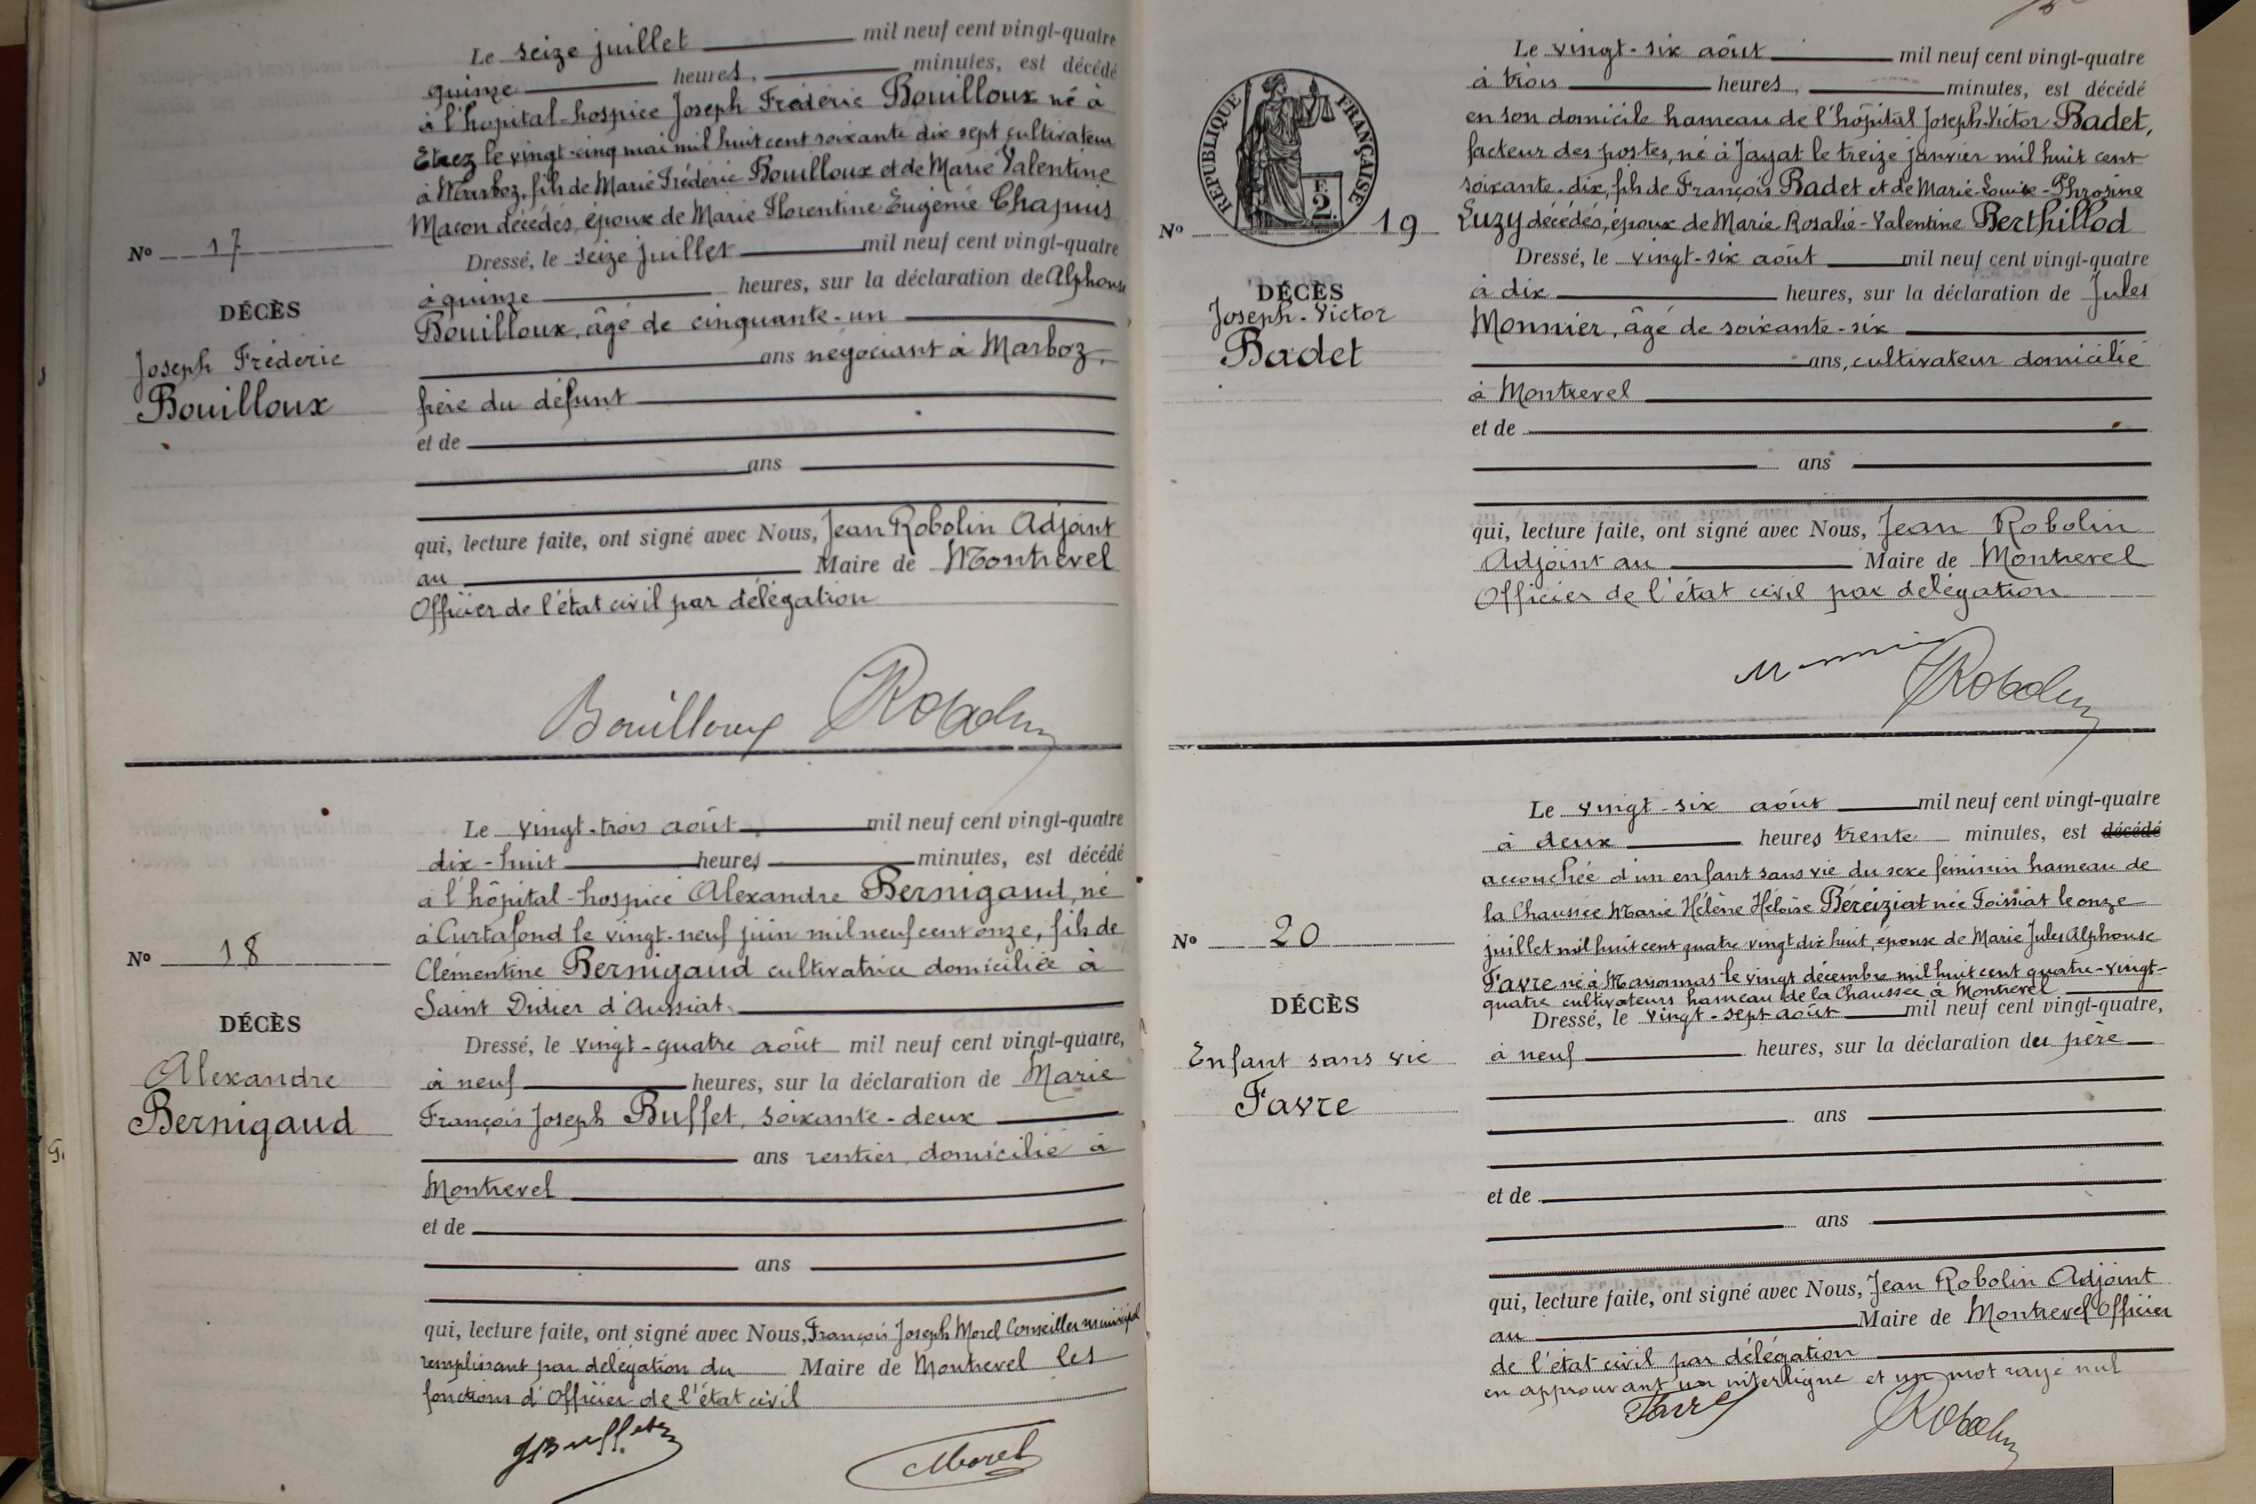 Le seize juillet mil neuf cent vingt-quatre
quinze heures, minutes, est décédé
à l'hôpital-hospice Joseph Frédéric Bouilloux né à
Etrez le vingt-cinq mai mil huit cent soixante dix sept cultivateur
à Marboz, fils de Marie Frédéric Bouilloux et de Marie Valentine
Macon décédés, époux de Marie Florentine Eugénie Chapuis
No 17
Dressé, le seize juillet mil neuf cent vingt-quatre
à quinze heures, sur la déclaration de Alphonse
DÉCÈS
Bouilloux, âgé de cinquante-un
Joseph Frédéric
ans négociant à Marboz,
Bouilloux
frère du défunt
et de
ans
qui, lecture faite, ont signé avec Nous, Jean Robolin Adjoint
au Maire de Montrevel
Officier de l'état civil par délégation
Bouilloux Robolin
Le vingt-trois août mil neuf cent vingt-quatre
dix-huit heures, minutes, est décédé
à l'hôpital-hospice Alexandre Bernigaud, né
à Curtafond le vingt-neuf juin mil neuf cent onze, fils de
No 18
Clémentine Bernigaud cultivatrice domiciliée à
Saint Didier d'Aussiat.
DÉCÈS
Dressé, le vingt-quatre août mil neuf cent vingt-quatre,
Alexandre
à neuf heures, sur la déclaration de Marie
Bernigaud
François Joseph Buffet, soixante-deux
ans rentier, domicilié à
Montrevel
et de
ans
qui, lecture faite, ont signé avec Nous, François Joseph Morel Conseiller municipal
remplissant par délégation du Maire de Montrevel les
fonctions d'Officier de l'état civil
JBuffet Morel
Le vingt-six août mil neuf cent vingt-quatre
à trois heures, minutes, est décédé
en son domicile hameau de l'hôpital Joseph-Victor Badet,
facteur des postes, né à Jayat le treize janvier mil huit cent
soixante-dix, fils de François Badet et de Marie-Louise-Phrosine
RÉPUBLIQUE FRANÇAISE
F.
2.
No 19
Luzy décédés, époux de Marie Rosalie-Valentine Berthillod
Dressé, le vingt-six août mil neuf cent vingt-quatre
DÉCÈS
à dix heures, sur la déclaration de Jules
Joseph-Victor
Monnier, âgé de soixante-six
Badet
ans, cultivateur domicilié
à Montrevel
et de
ans
qui, lecture faite, ont signé avec Nous, Jean Robolin
Adjoint au Maire de Montrevel
Officier de l'état civil par délégation
Monnier Robolin
Le vingt-six août mil neuf cent vingt-quatre
à deux heures trente minutes, est décédé
accouchée d'un enfant sans vie du sexe féminin hameau de
la Chaussée Marie Hélène Héloïse Béréiziat née Foissiat le onze
No 20
juillet mil huit cent quatre vingt dix huit, épouse de Marie Jules Alphonse
Favre né à Marsonnas le vingt décembre mil huit cent quatre-vingt-
quatre cultivateurs hameau de la Chaussée à Montrevel
DÉCÈS
Dressé, le vingt-sept août mil neuf cent vingt-quatre,
Enfant sans vie
à neuf heures, sur la déclaration du père
Favre
ans
et de
ans
qui, lecture faite, ont signé avec Nous, Jean Robolin Adjoint
au Maire de Montrevel Officier
de l'état civil par délégation
en approuvant un interligne et un mot rayé nul
Favre Robolin